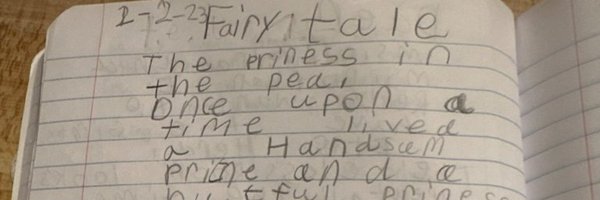 1-2-23 Fairy tale
The priness in
the pea,
Once upon a
time lived
a Handsum
prine and a
butful priness